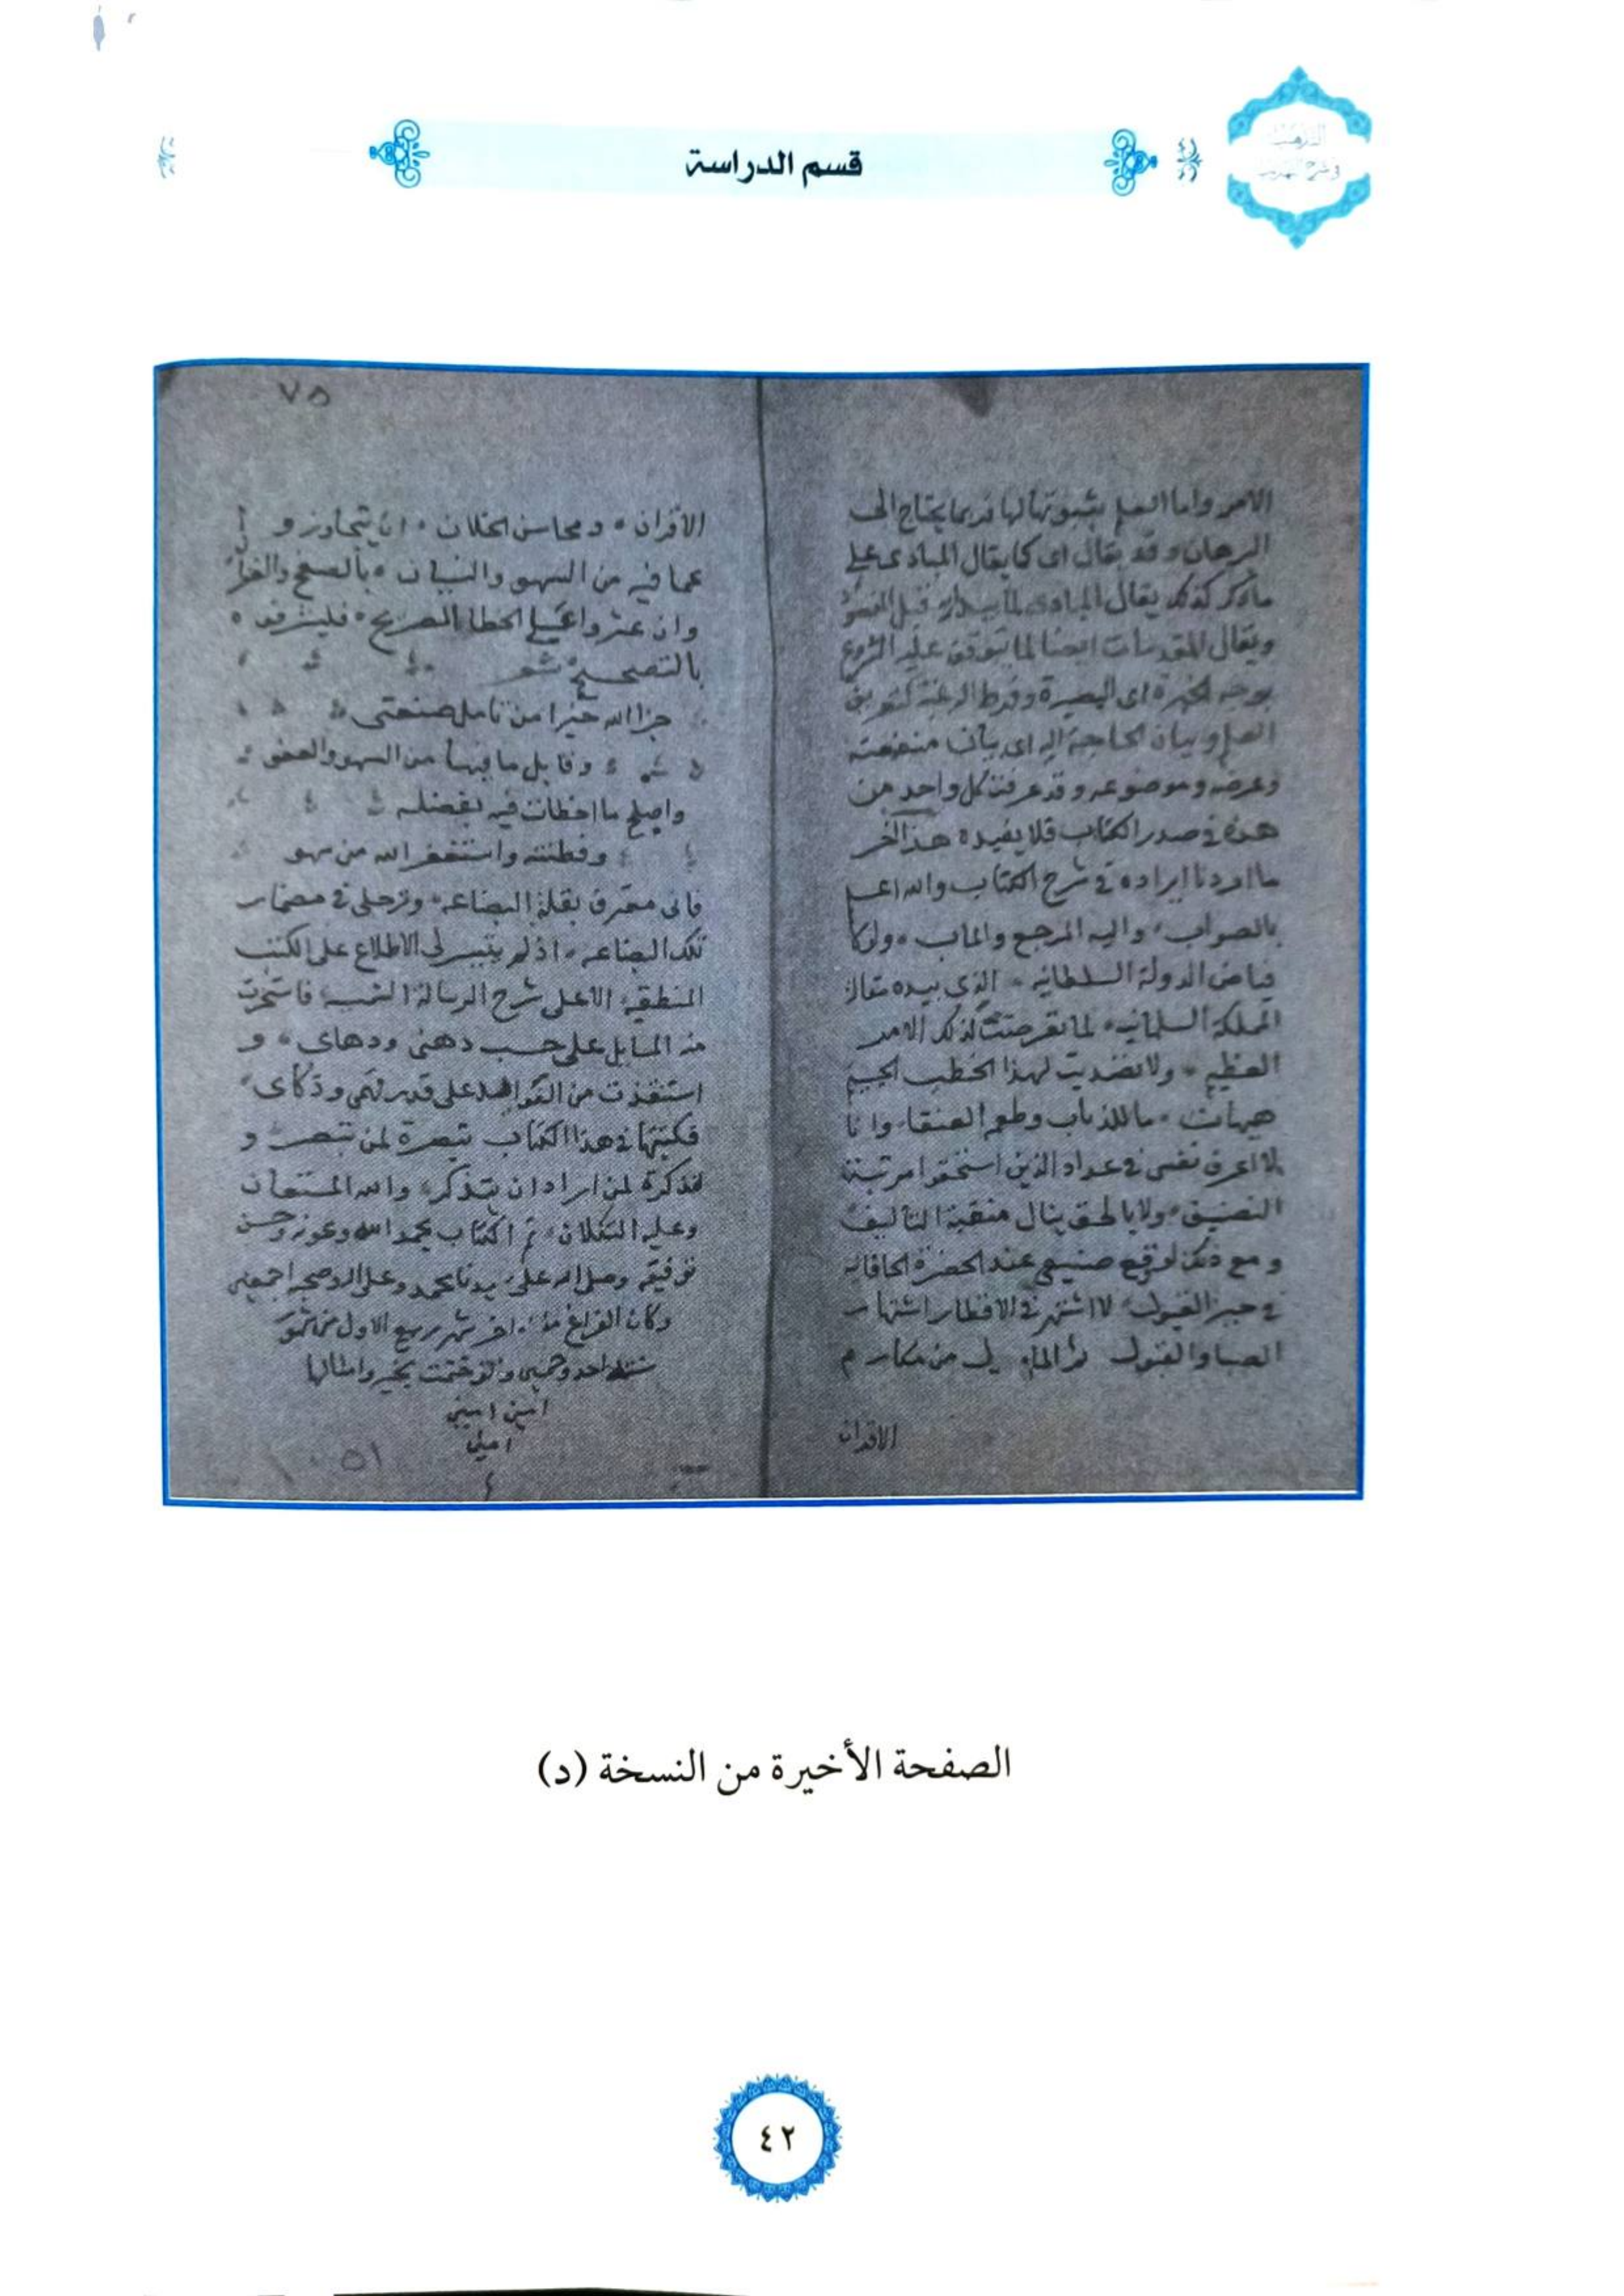 قسم الدراسة
التذهيب
في شرح التهذيب
الامر واما العلم بثبوتها لها فربما يحتاج الى
البرهان وقد يقال اى كما يقال المبادى على
ماذكر كذلك يقال المبادى لما يبدا به قبل المقصود
ويقال المقدمات ايضا لما يتوقف عليه الشروع
بوجه الخبرة اى البصيرة وفرط الرغبة كتعريف
العلم وبيان الحاجة اليه اى بيان منفعته
وغرضه وموضوعه وقد عرفت كل واحد من
هذه فى صدر الكتاب فلا نفيده هذا اخر
ما اردنا ايراده فى شرح الكتاب والله اعلم
بالصواب واليه المرجع والماب ولولا
فياض الدولة السلطانيه الذى بيده مقاليد
المملكة السليمانيه لما تعرضت لذلك الامر
العظيم ولا تصديت لهذا الخطب الجسيم
هيهات ما للذباب وطعم العنقا وانا
لا اعرف نفسى فى عداد الذين استحقوا مرتبة
التصنيف ولا بالحق ينال منقبة التاليف
ومع ذلك لو وقع صنيعى عند الحضرة الخاقانيه
فى حيز القبول لاشتهر فى الاقطار اشتهار
الصبا والقبول ثم المامول من مكارم
الاقران
٧٥
الاقران ومحاسن الخلان ان يتجاوزوا
عما فيه من السهو والنسيان بالصفح والغفران
وان عثروا على الخطا الصريح فليشرفوه
بالتصحيح شعر
جزا الله خيرا من تامل صنعتى
وقابل ما فيها من السهو والعفو
واصلح ما اخطات فيه بفضله
وفطنته واستغفر الله من سهو
فانى معترف بقلة البضاعه وترجلى فى مضمار
تلك الصناعه اذ لم يتيسر لى الاطلاع على الكتب
المنطقيه الا على شرح الرسالة الشمسيه فاستخرجت
منه المسايل على حسب ذهنى ودهاى و
استنفذت من القواعد على قدر فهمى وذكاى
فكتبتها فى هذا الكتاب تبصرة لمن تبصر و
تذكرة لمن اراد ان يتذكر والله المستعان
وعليه التكلان تم الكتاب بحمد الله وعونه وحسن
توفيقه وصلى الله على سيدنا محمد وعلى اله وصحبه اجمعين
وكان الفراغ منه اخر شهر ربيع الاول من شهور
سنة احد وخمسين والف ختمت بخير وامثالها
امين امين
امين
١٠٥١
الصفحة الأخيرة من النسخة (د)
٤٢